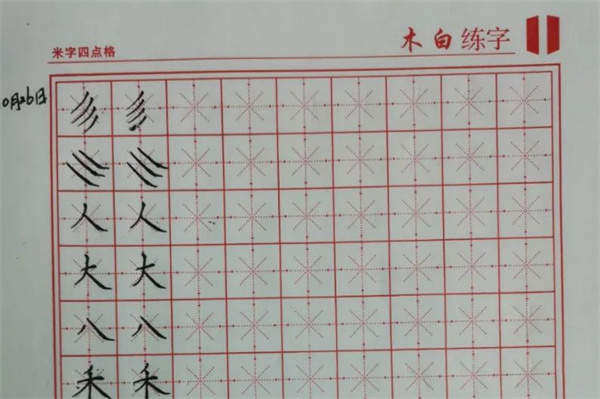 米字四点格
木白练字
0月26日
彡 彡
人 人
大 大
八 八
禾 禾